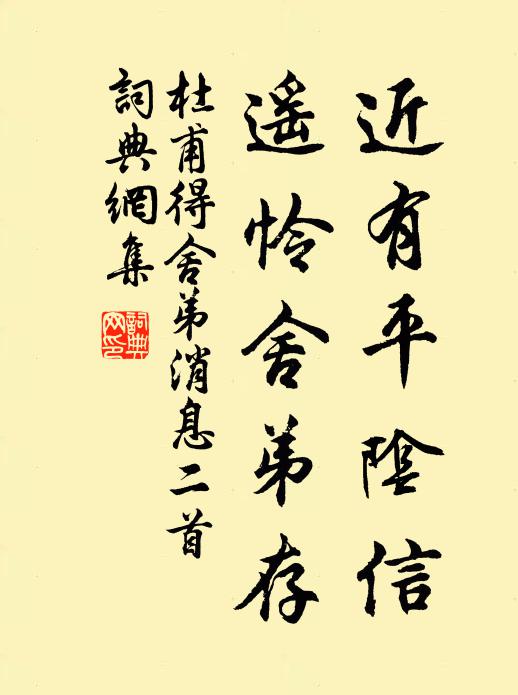 近有平陰信
遥怜舍弟存
杜甫得舍弟消息二首
詞典網集
詞典
网印